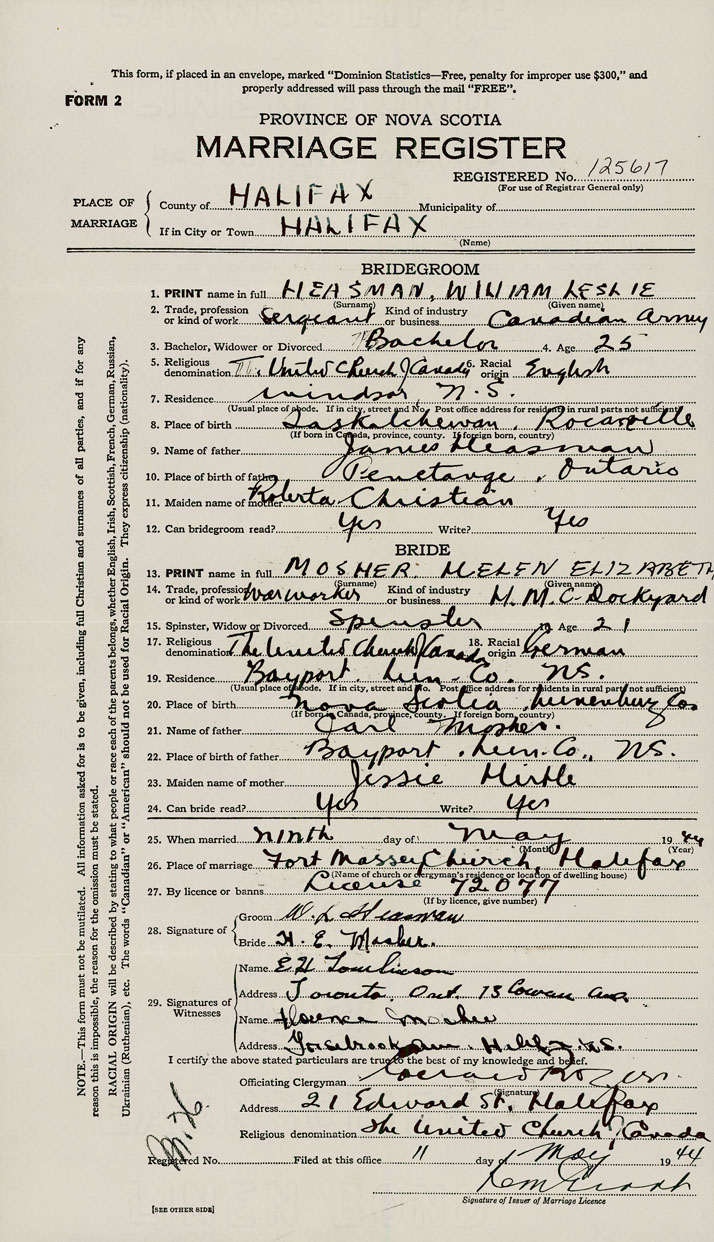 This form, if placed in an envelope, marked "Dominion Statistics—Free, penalty for improper use $300," and
properly addressed will pass through the mail "FREE".
FORM 2
PROVINCE OF NOVA SCOTIA
MARRIAGE REGISTER
REGISTERED No. 125617
(For use of Registrar General only)
PLACE OF MARRIAGE
County of HALIFAX Municipality of
If in City or Town HALIFAX
(Name)
BRIDEGROOM
1. PRINT name in full HEASMAN, WILLIAM LESLIE
(Surname) (Given name)
2. Trade, profession or kind of work Sergeant Kind of industry or business Canadian Army
3. Bachelor, Widower or Divorced Bachelor 4. Age 25
5. Religious denomination The United Church of Canada 6. Racial origin English
7. Residence Windsor, N.S.
(Usual place of abode. If in city, street and No. Post office address for residents in rural parts not sufficient)
8. Place of birth Saskatchewan, Rocanville
(If born in Canada, province, county. If foreign born, country)
9. Name of father James Heasman
10. Place of birth of father Penetange, Ontario
11. Maiden name of mother Roberta Christian
12. Can bridegroom read? Yes Write? Yes
BRIDE
13. PRINT name in full MOSHER HELEN ELIZABETH
(Surname) (Given name)
14. Trade, profession or kind of work War worker Kind of industry or business H.M.C. Dockyard
15. Spinster, Widow or Divorced Spinster 16. Age 21
17. Religious denomination The United Church of Canada 18. Racial origin German
19. Residence Bayport, Lun. Co. N.S.
(Usual place of abode. If in city, street and No. Post office address for residents in rural parts not sufficient)
20. Place of birth Nova Scotia, Lunenburg Co.
(If born in Canada, province, county. If foreign born, country)
21. Name of father Carl Mosher
22. Place of birth of father Bayport, Lun. Co., N.S.
23. Maiden name of mother Jessie Hirtle
24. Can bride read? Yes Write? Yes
25. When married Ninth day of May 1944
(Month) (Year)
26. Place of marriage Fort Massey Church, Halifax
(Name of church or clergyman's residence or location of dwelling house)
27. By licence or banns License 72077
(If by licence, give number)
28. Signature of
Groom W. L. Heasman
Bride H. E. Mosher.
29. Signatures of Witnesses
Name E H Tomlinson
Address Toronto, Ont. 13 Cowan Ave
Name Florence Mosher
Address Halifax N.S.
I certify the above stated particulars are true to the best of my knowledge and belief.
Officiating Clergyman
(Signature)
Address 21 Edward St, Halifax
Religious denomination The United Church of Canada
Registered No. Filed at this office 11 day of May 1944
Signature of Issuer of Marriage Licence
[SEE OTHER SIDE]
NOTE.—This form must not be mutilated. All information asked for is to be given, including full Christian and surnames of all parties, and if for any
reason this is impossible, the reason for the omission must be stated.
RACIAL ORIGIN will be described by stating to what people or race each of the parents belongs, whether English, Irish, Scottish, French, German, Russian,
Ukrainian (Ruthenian), etc. The words "Canadian" or "American" should not be used for Racial Origin. They express citizenship (nationality).